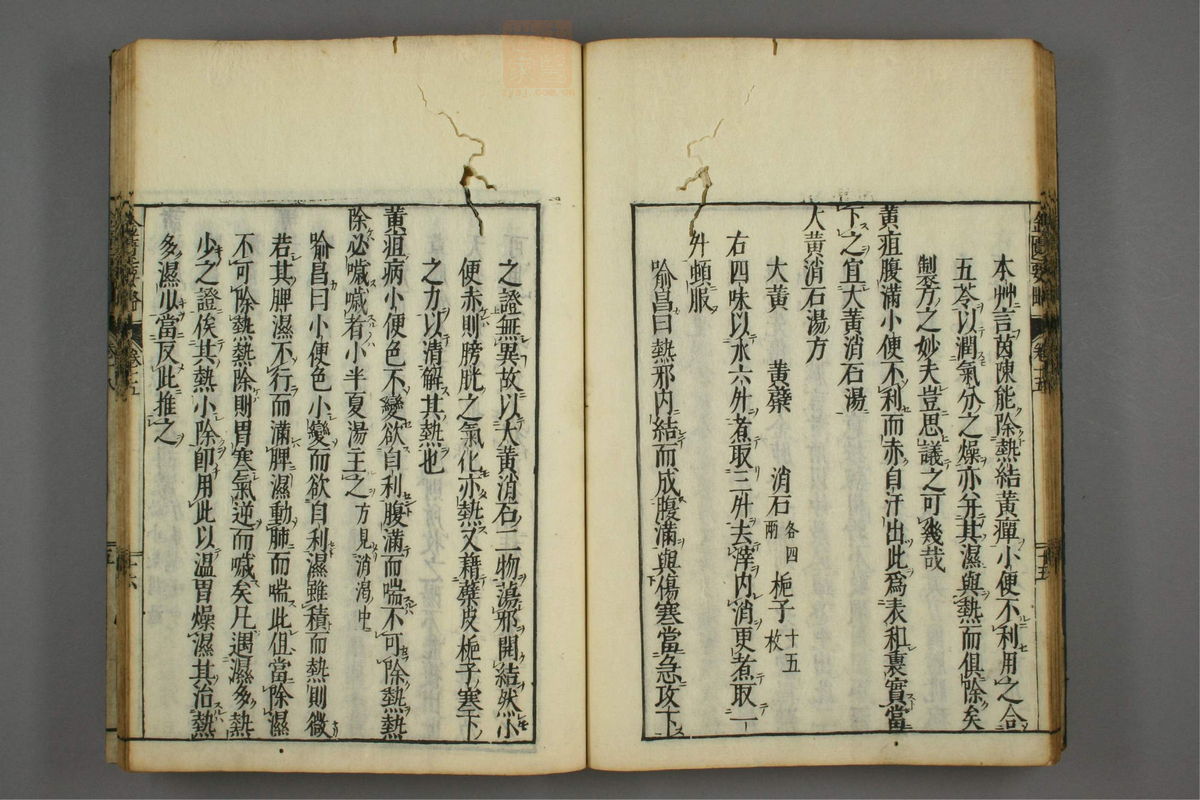 本艸言茵蔯能除熱結黃癉小便不利用之合
五苓以潤氣分之燥亦并其濕與熱而俱除矣
製方之妙夫豈思議之可幾哉
黃疸腹滿小便不利而赤自汗出此爲表和裏實當
下之宜大黃消石湯
大黃消石湯方
大黃 黃蘗 消石各四兩 梔子十五枚
右四味以水六升煮取三升去滓內消更煮取一
升頓服
喻昌曰熱邪內結而成腹滿與傷寒當急攻下
之證無異故以大黃消石二物蕩邪開結然小
便赤則膀胱之氣化亦熱又藉蘗皮梔子寒下
之力以清解其熱也
黃疸病小便色不變欲自利腹滿而喘不可除熱熱
除必噦噦者小半夏湯主之方見消渴中
喻昌曰小便色小變而欲自利濕雖積而熱則微
若其脾濕不行而滿脾濕動肺而喘此但當除濕
不可除熱熱除則胃寒氣逆而噦矣凡遇濕多熱
少之證俟其熱小除卽用此以溫胃燥濕其治熱
多濕少當反此推之